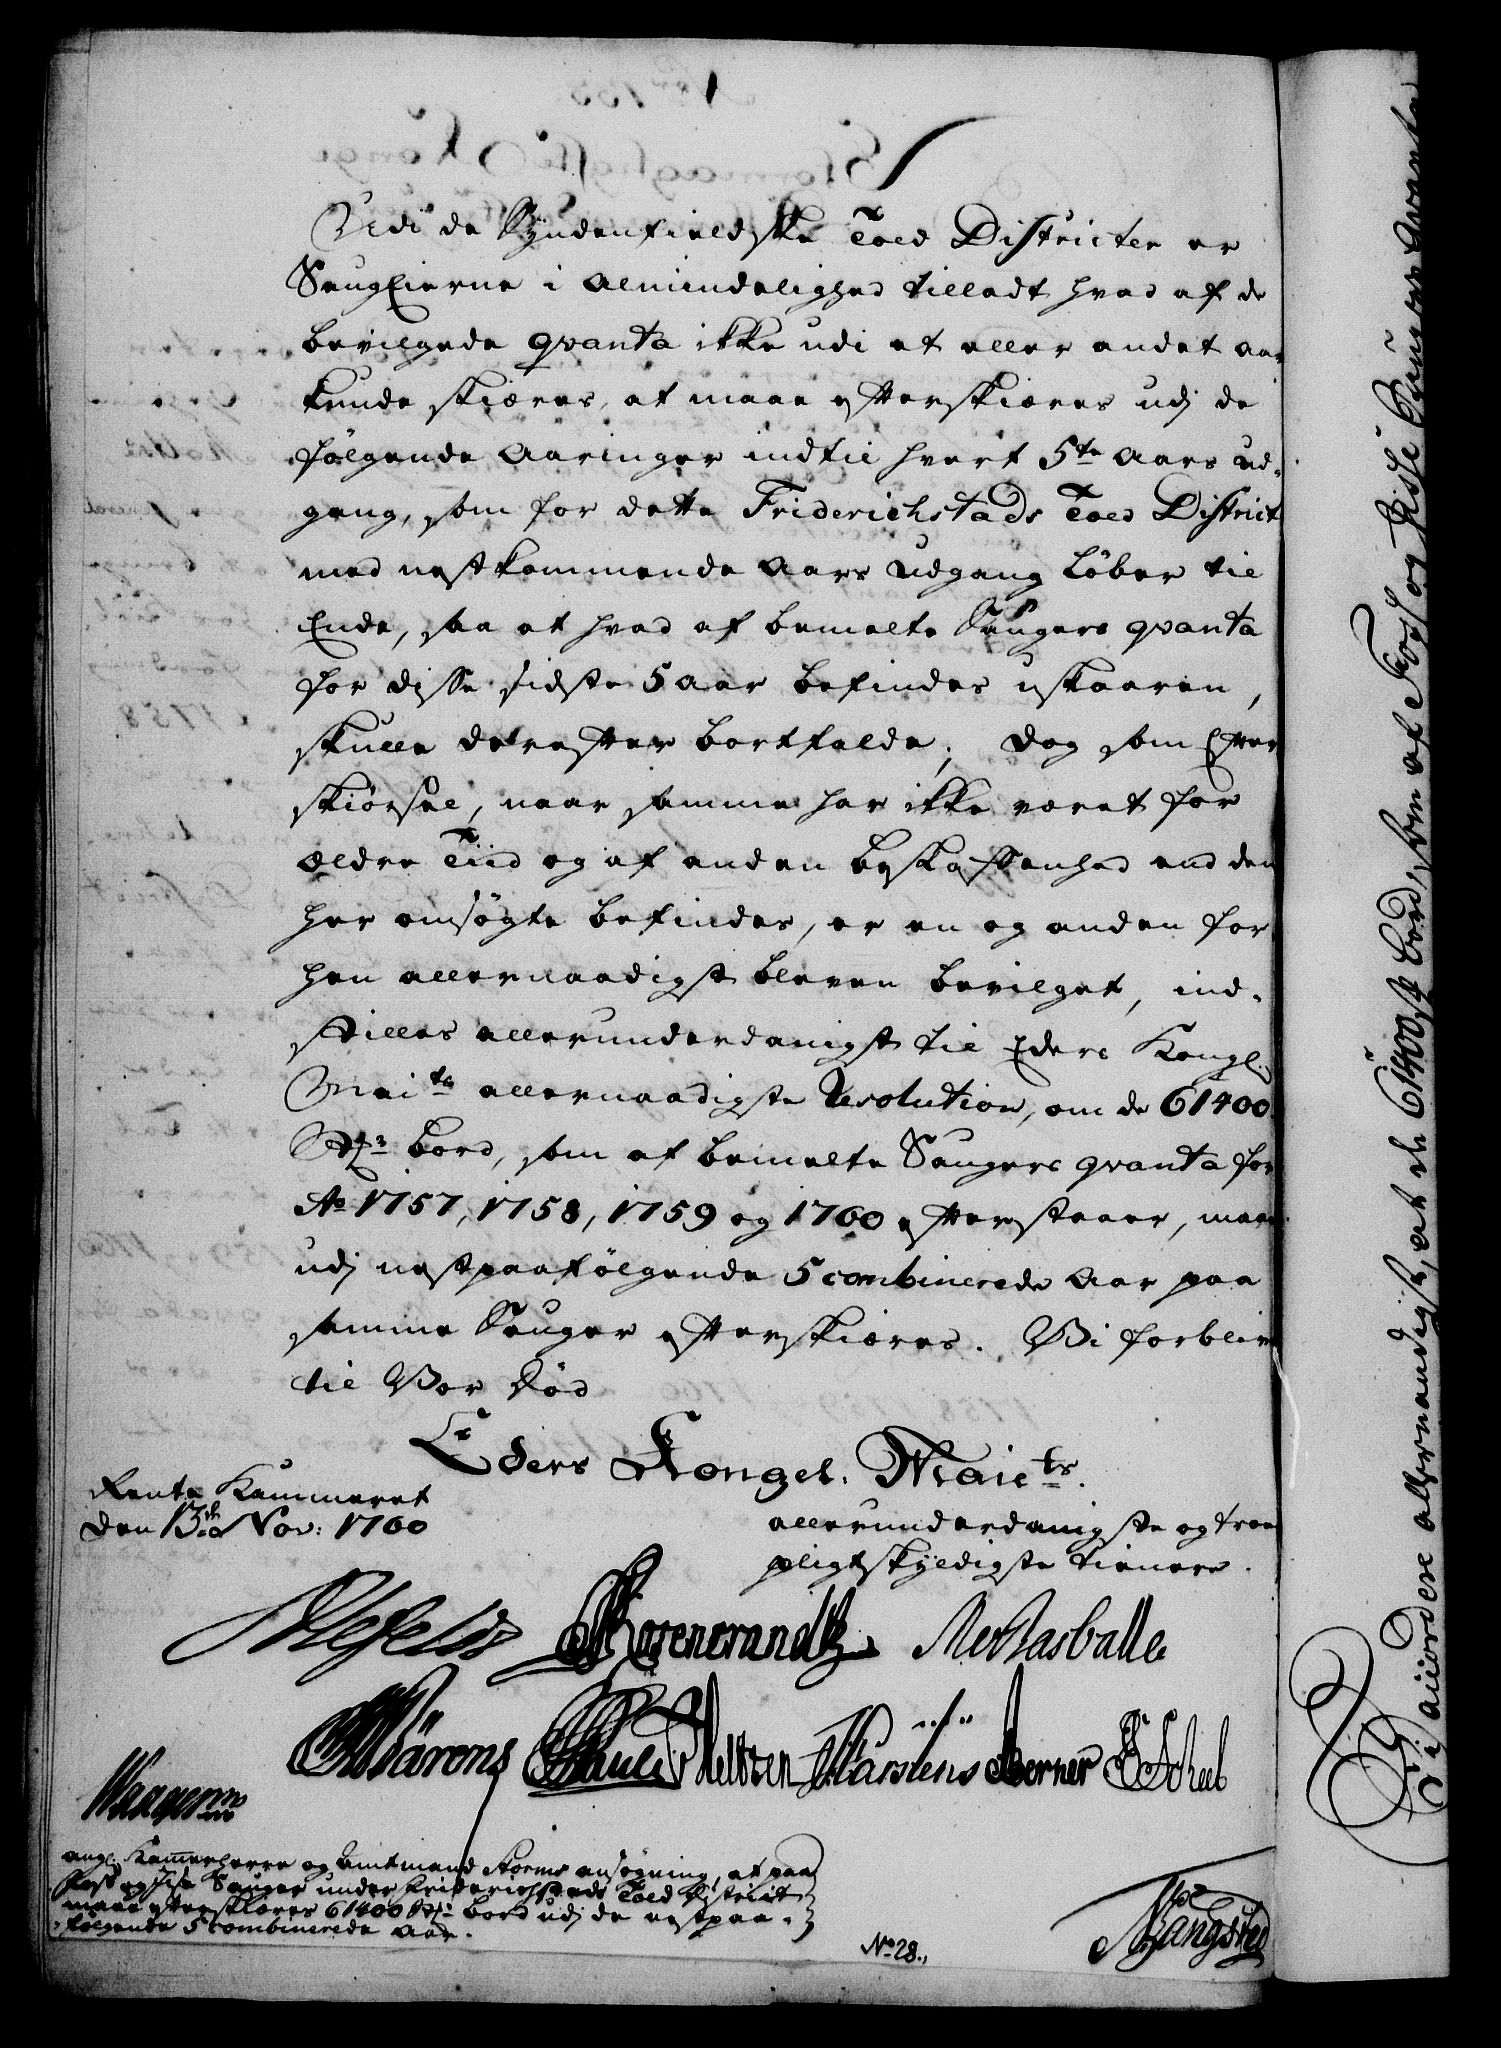 Udi de Syndenfieldske Told Districter er
Saugeierne i Almindelighed tilladt hvad af de
bevilgede qvanta ikke udi et eller andet Aar
kunde skiæres, at maae efterskiæres udj de
følgende Aaringer indtil hvert 5te Aars Ud-
gang, som for dette Friderichstads Told District
med nestkommende Aars Udgang løber til
Ende, saa at hvad af bemelte Saugers qvanta
for disse sidste 5 Aar befindes uskaaren,
skulle derefter bortfalde; Dog som Efter
skiørsel, naar samme har ikke været for
ældre Tiid og af anden beskaffenhed end den
her omsøgte befindes, er en og anden for
hen allernaadigst bleven bevilget, ind-
stilles allerunderdanigst til Eders Kongl.
Mai:ts allernaadigste Resolution, om de 61400
St:r Bord, som af bemelte Saugers qvanta for
Ao 1757, 1758, 1759 og 1760 efterstaaer, maae
udj nestpaafølgende 5 combinerede Aar paa
samme Sauger efterskiæres. Vi forbliver
til Vor Død
Eders Kongel. Maiets.
Rente Kammeret
den 13de Nov: 1760
allerunderdanigste og troe
pligtskyldigste tienere.
Rosencrandtz
Barens Karstens Berner Scheel
ang: Kammerherre og Amtmand Storms ansøgning, at paa
Foss og Hisse Sauger under Friderichstads Told District
maae efterskiæres 61400 St:r Bord udj de nestpaa-
følgende 5 combinerede Aar.
No 28.
Bangsted
Vi approbere allernaadigst, at de 61400 st Bord, som af Foss og Hisse Saugers Qvanta